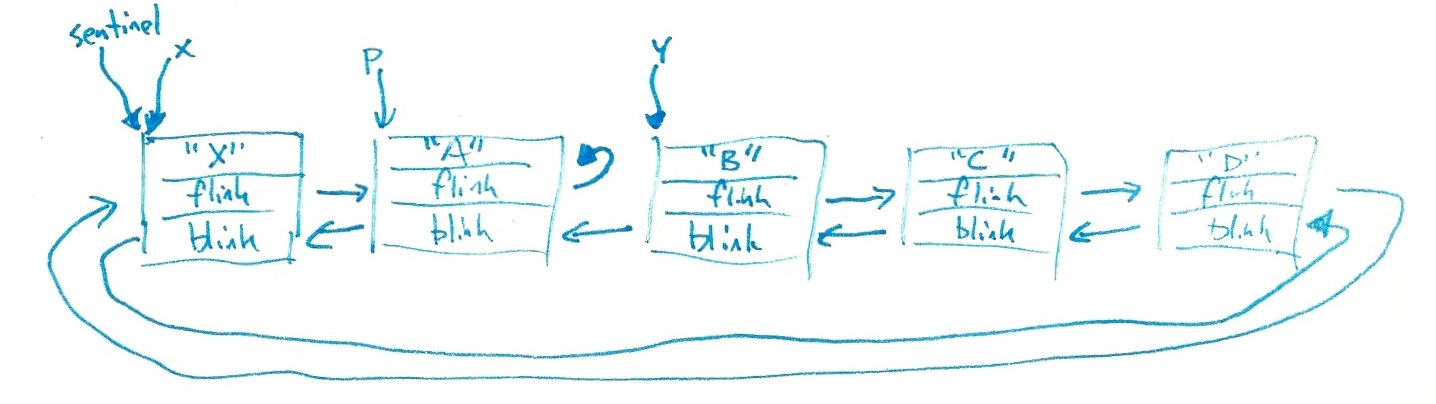 sentinel
X
P
Y
"X"
flink
blink
"A"
flink
blink
"B"
flink
blink
"C"
flink
blink
"D"
flink
blink